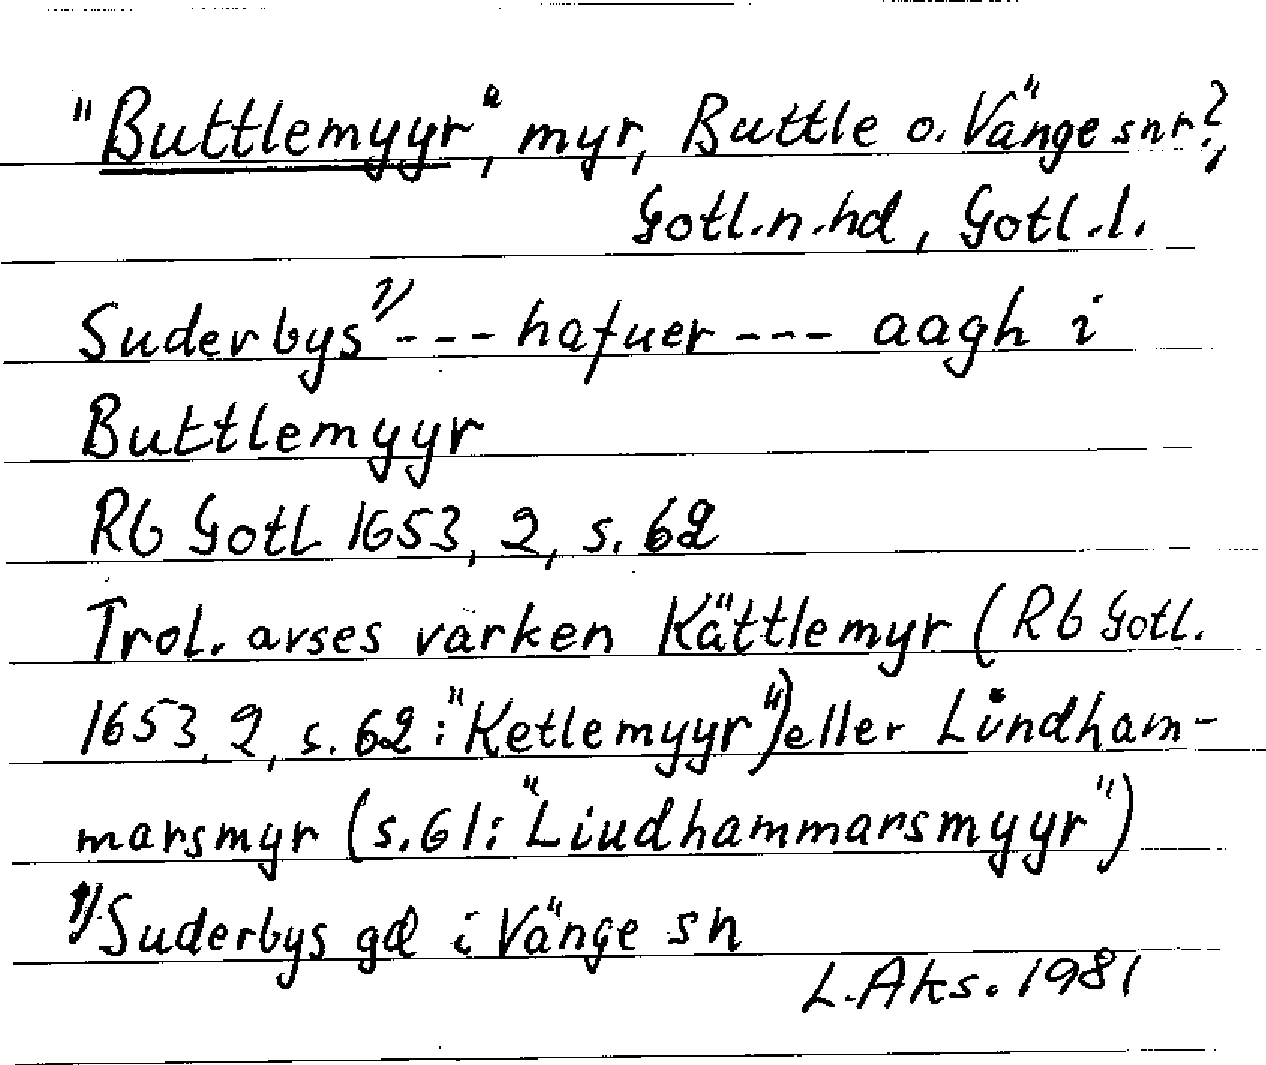 "Buttlemyyr", myr, Buttle o. Vänge snr?,
Gotl.n.hd, Gotl.l.
Suderbys 1) --- hafuer --- aagh i
Buttlemyyr
Rb Gotl 1653, 2, s. 62
Trol. avses varken Kättlemyr (Rb Gotl.
1653, 2, s. 62: "Ketlemyyr") eller Lindham-
marsmyr (s. 61: "Liudhammarsmyyr")
1) Suderbys gd i Vänge sn
L. Aks. 1981